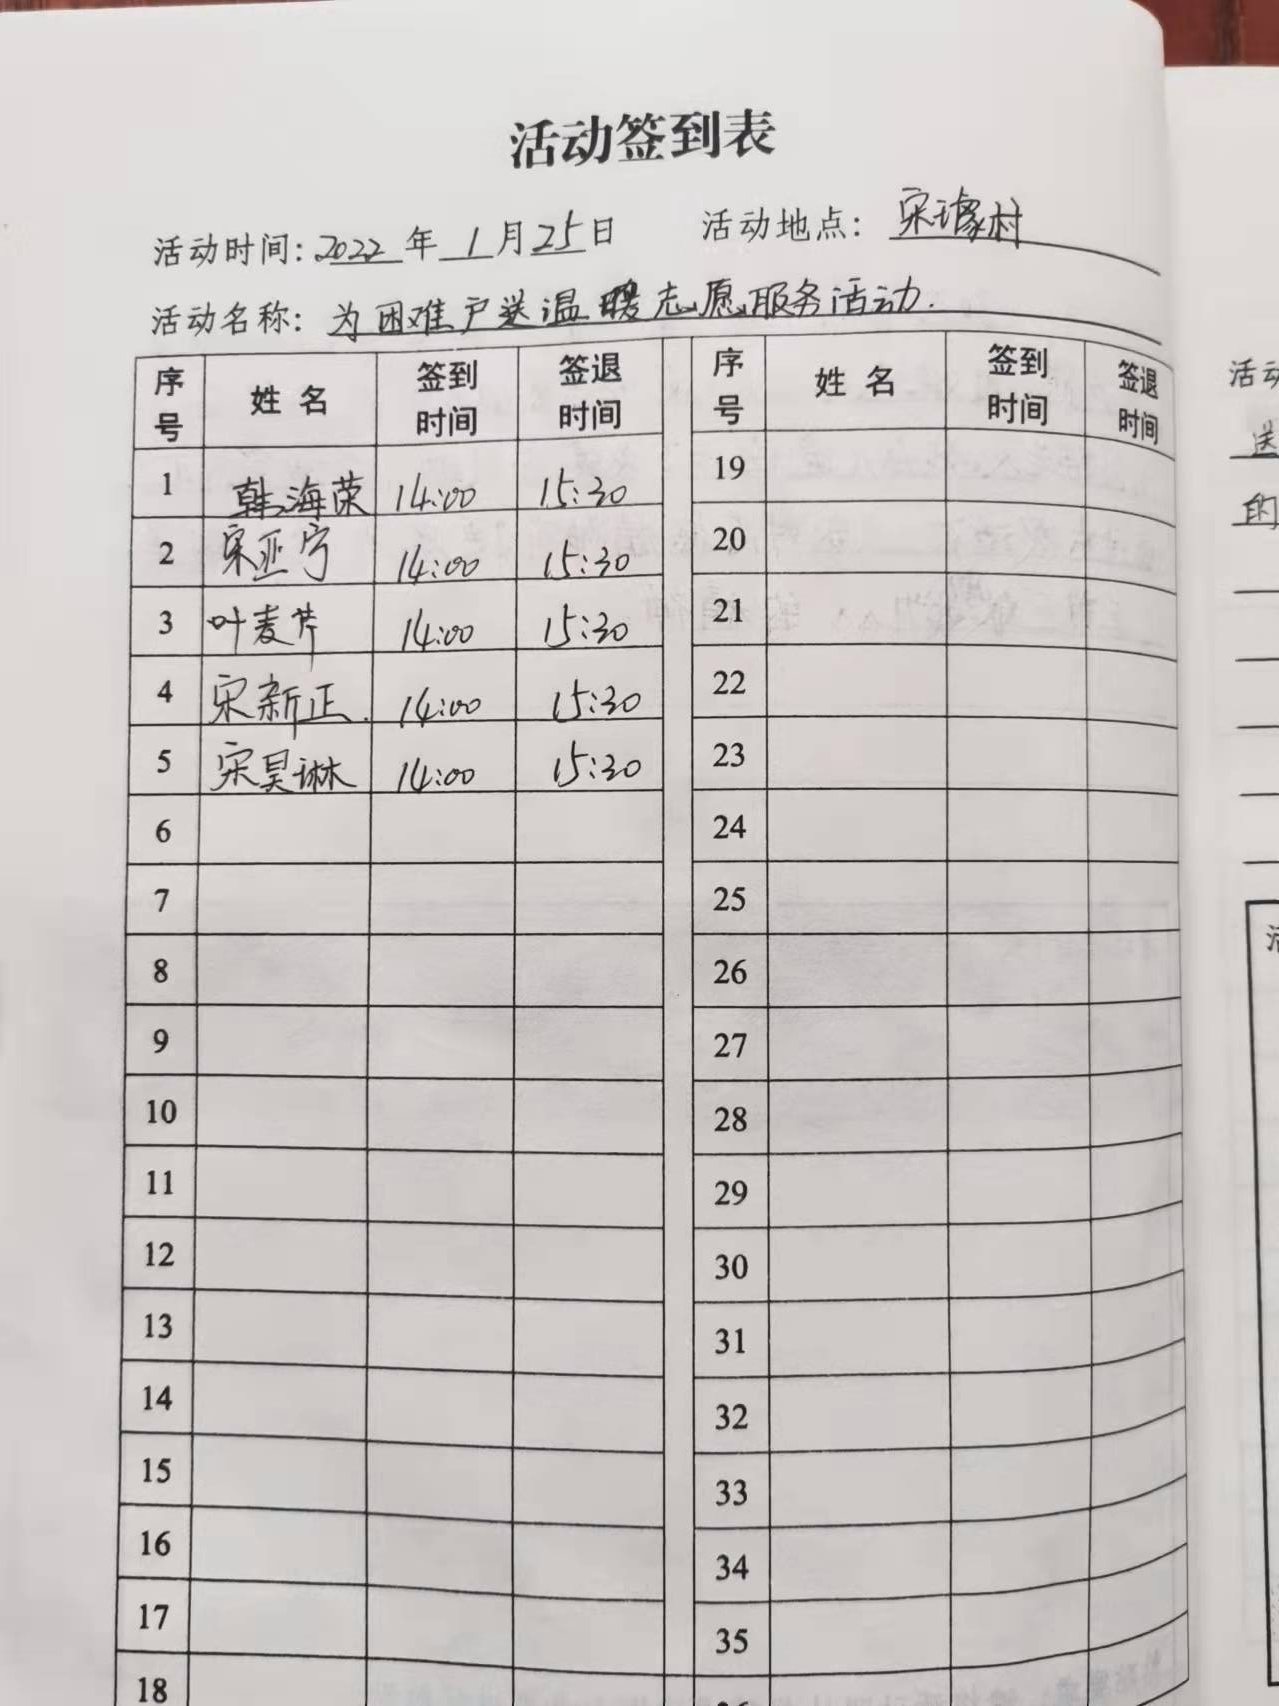 活动签到表
活动时间: 2022 年 1 月 25 日 活动地点: 宋璩村
活动名称: 为困难户送温暖志愿服务活动.
序号 姓名 签到时间 签退时间 序号 姓名 签到时间 签退时间
1 韩海荣 14:00 15:30 19
2 宋亚宁 14:00 15:30 20
3 叶麦芹 14:00 15:30 21
4 宋新正. 14:00 15:30 22
5 宋昊琳 14:00 15:30 23
6 24
7 25
8 26
9 27
10 28
11 29
12 30
13 31
14 32
15 33
16 34
17 35
18
活动
送
的